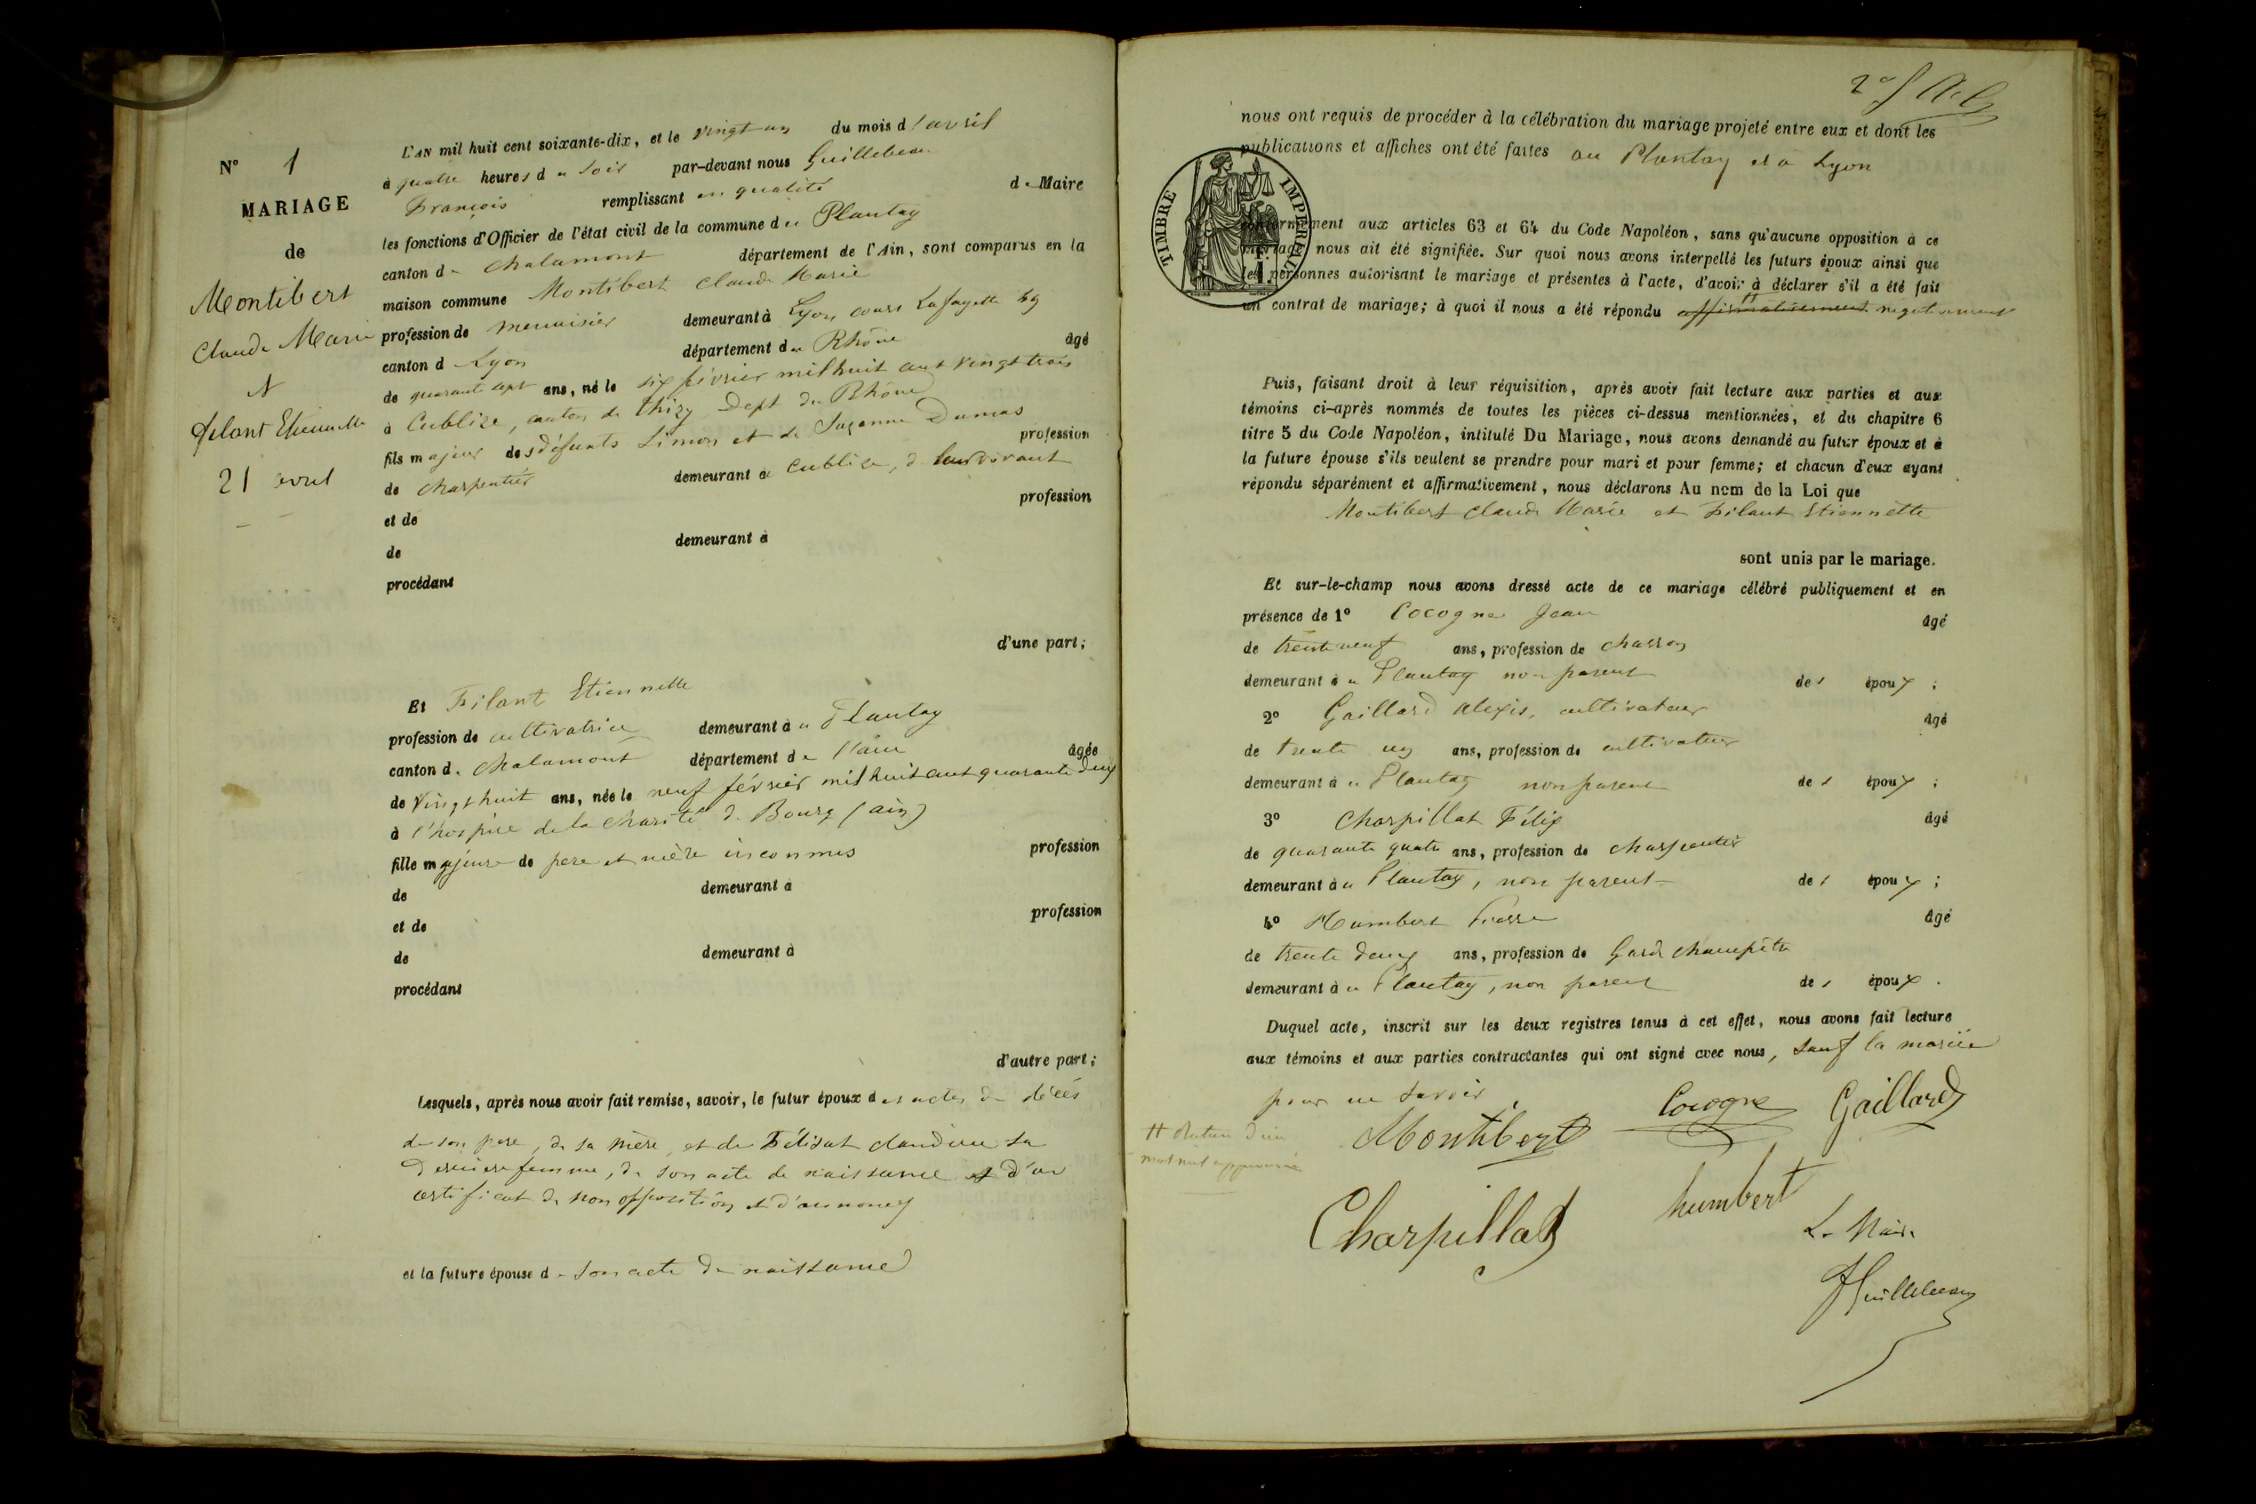 N° 1
MARIAGE
de
Montibert
Claude Marie
&
filant Etiennette
21 avril
L'AN mil huit cent soixante-dix, et le vingt un du mois d'avril
à quatre heures du soir par-devant nous Guillebeau
François remplissant en qualité de Maire
les fonctions d'Officier de l'état civil de la commune du Plantay
canton de Chalamont département de l'Ain, sont comparus en la
maison commune Montibert Claude Marie
profession de menuisier demeurant à Lyon cours Lafayette 49
canton d Lyon département du Rhône âgé
de quarante sept ans, né le six février mil huit cent vingt trois
à Cublize, canton de Thizy Dept du Rhône
fils majeur des défunts Simon et de Suzanne Dumas profession
de charpentier demeurant à Cublize, de leur vivant
et de profession
de demeurant à
procédant
d'une part;
Et Filant Etiennette
profession de cultivatrice demeurant à u Plantay
canton de Chalamont département de l'ain âgée
de vingt huit ans, née le neuf février mil huit cent quarante deux
à l'hospice de la Charité de Bourg (ain)
fille majeure de père et mère inconnus profession
de demeurant à
et de profession
de demeurant à
procédant
d'autre part;
Lesquels, après nous avoir fait remise, savoir, le futur époux des actes de décès
de son père, de sa mère, et de Félisat claudine sa
dernière femme, de son acte de naissance et d'un
certificat de non opposition et d'annonces
et la future épouse de son acte de naissance
2e
nous ont requis de procéder à la célébration du mariage projeté entre eux et dont les
publications et affiches ont été faites au Plantay et à Lyon
TIMBRE IMPÉRIAL
1 F.
conformément aux articles 63 et 64 du Code Napoléon, sans qu'aucune opposition à ce
mariage nous ait été signifiée. Sur quoi nous avons interpellé les futurs époux ainsi que
les personnes autorisant le mariage et présentes à l'acte, d'avoir à déclarer s'il a été fait
un contrat de mariage; à quoi il nous a été répondu affirmativement # négativement
Puis, faisant droit à leur réquisition, après avoir fait lecture aux parties et aux
témoins ci-après nommés de toutes les pièces ci-dessus mentionnées, et du chapitre 6
titre 5 du Code Napoléon, intitulé Du Mariage, nous avons demandé au futur époux et à
la future épouse s'ils veulent se prendre pour mari et pour femme; et chacun d'eux ayant
répondu séparément et affirmativement, nous déclarons Au nom de la Loi que
Montibert Claude Marie et Filant Etiennette
sont unis par le mariage.
Et sur-le-champ nous avons dressé acte de ce mariage célébré publiquement et en
présence de 1° Cocogne Jean âgé
de trente neuf ans, profession de charron
demeurant à u Plantay non parent des époux;
2° Gaillard Alexis, cultivateur âgé
de trente un ans, profession de cultivateur
demeurant à u Plantay non parent des époux;
3° Charpillat Félix âgé
de quarante quatre ans, profession de charpentier
demeurant à u Plantay, non parent des époux;
4° Humbert Pierre âgé
de trente deux ans, profession de Garde champêtre
demeurant à u Plantay, non parent des époux.
Duquel acte, inscrit sur les deux registres tenus à cet effet, nous avons fait lecture
aux témoins et aux parties contractantes qui ont signé avec nous, sauf la mariée
pour ne savoir
# rature d'un
mot nul approuvée
Montibert Cocogne Gaillard
Charpillat humbert
Le Maire
Guillebeau